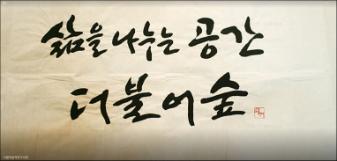 삶을 나누는 공간
더불어숲